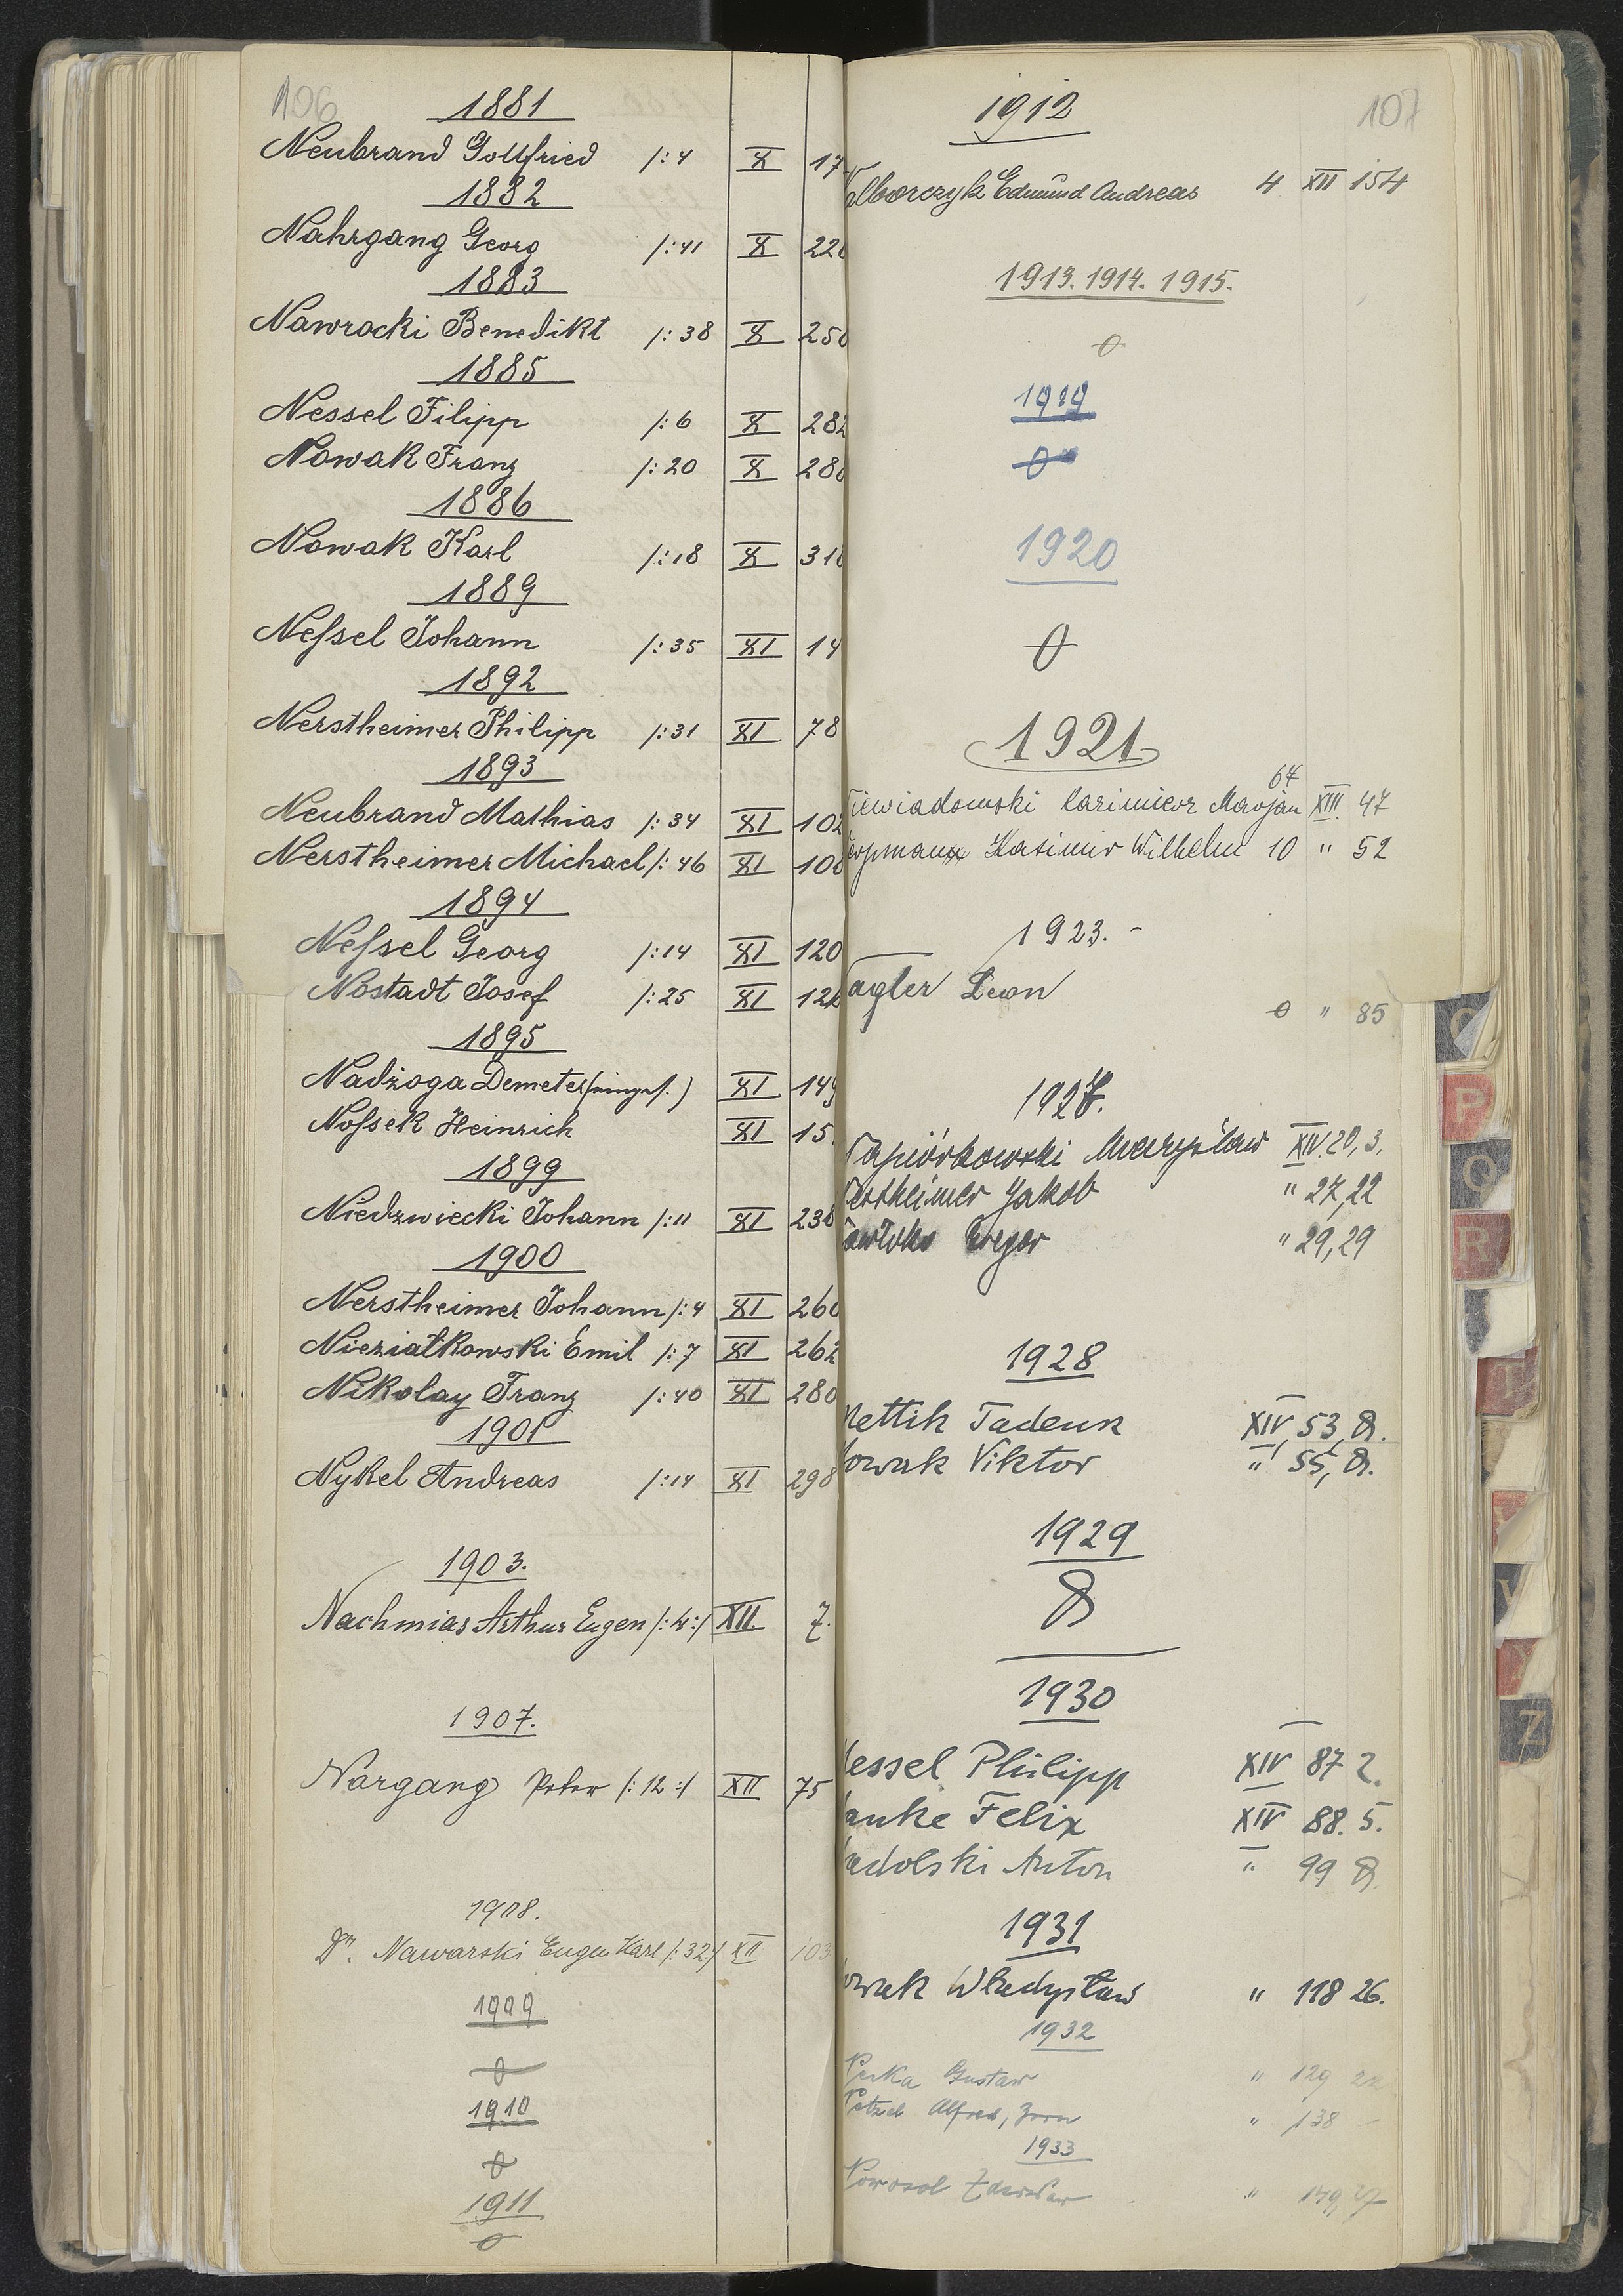 106
1881
Neubrand Gottfried /:4 X 17
1882
Nahrgang Georg /:41 X 220
1883
Nawrocki Benedikt /:38 X 250
1885
Nessel Filipp /:6 X 282
Nowak Franz /:20 X 288
1886
Nowak Karl /:18 X 310
1889
Neſsel Johann /:35 XI 14
1892
Nerstheimer Philipp /:31 XI 78
1893
Neubrand Mathias /:34 XI 102
Nerstheimer Michael /:46 XI 108
1894
Neſsel Georg /:14 XI 120
Nostadt Josef /:25 XI 126
1895
Nadżoga Demeter XI 149
Noſsek Heinrich XI 15
1899
Niedzwiecki Johann /:11 XI 238
1900
Nerstheimer Johann /:4 XI 260
Nieziatkowski Emil /:7 XI 262
Nikolay Franz /:40 XI 280
1901
Nykel Andreas /:14 XI 298
1903.
Nachmias Arthur Eugen /:4:/ XII. 7.
1907.
Nargang Peter /:12:/ XII 75
1908.
Dr. Nawarski Eugen Karl /:32:/ XII 103
1909
0
1910
0
1911
0
107
1912
alborczyk Edmund Andreas 4 XII 154
1913. 1914. 1915.
0
1919
0
1920
0
1921
67
iewiadomski Kazimierz Marjan XIII. 47
Kasimir Wilhelm 10 " 52
1923. -
agler Leon
0 " 85
1927.
apiórkowski Mieczysław XIV. 20, 3.
erstheimer Jakob " 27, 22
Gregor " 29, 29
1928
ettik Tadeusz XIV 53, 0.
owak Viktor " 55, 0.
1929
0
1930
essel Philipp XIV 87 2.
anke Felix XIV 88. 5.
adolski Anton " 99 0.
1931
owak Władysław " 118 26.
1932
Gustaw " 129
Alfred, " 138 -
1933
Zdzisław " 149, 27
O
P
Q
R
Z